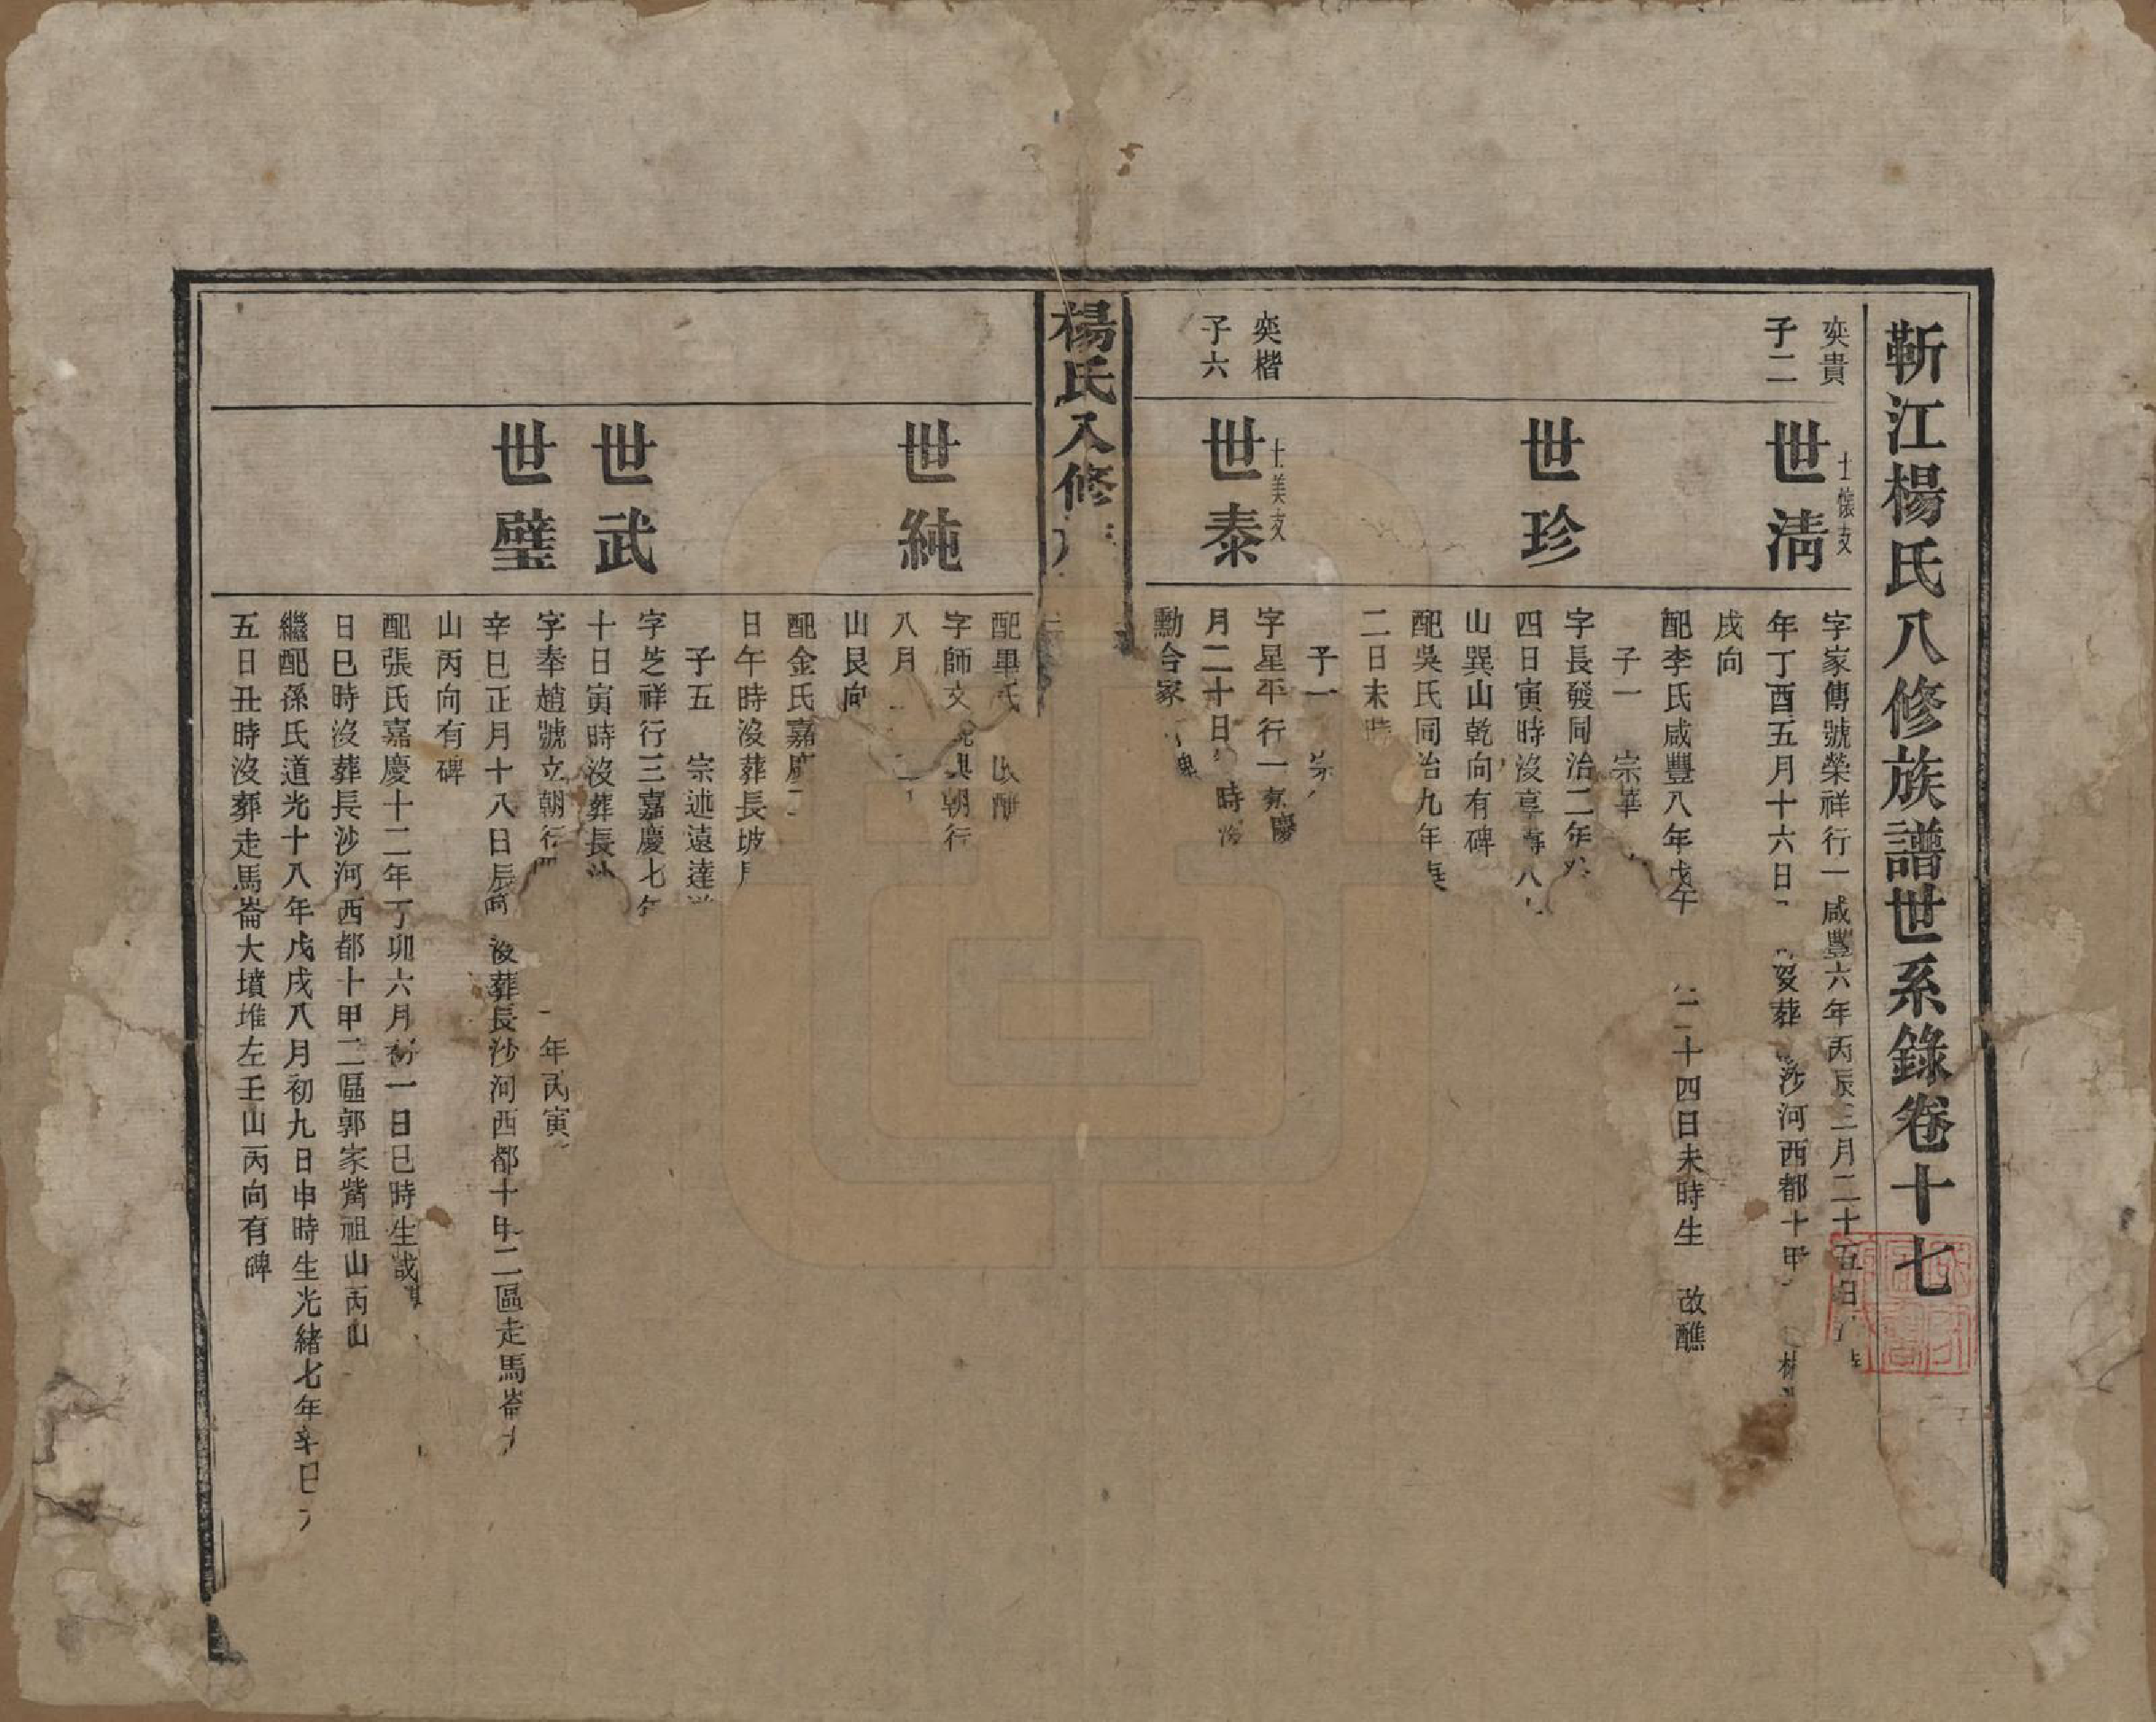 靳江楊氏八修族譜世系錄卷十七
奕貴
子二
士懷支
世清
字家傳號榮祥行一咸豐六年丙辰三月二十五日
年丁酉五月十六日 葬 沙河西都十甲
戌向
配李氏咸豐八年戊午 二十四日未時生 改醮
子一 宗華
世珍
字長發同治二年
四日寅時沒享壽八
山巽山乾向有碑
配吳氏同治九年庚
二日未時
子一 宗
奕楷
子六
士美支
世泰
字星平行一嘉慶
月二十日 時沒
勳合冢 碑
楊氏八修
配畢氏 改醮
世純
字師文 朝行
八月 二
山艮向
配金氏嘉慶
日午時沒葬長坡
子五 宗述遠達
世武
字芝祥行三嘉慶七年
十日寅時沒葬長沙
世璧
字奉趙號立朝行 年丙寅
辛巳正月十八日辰時沒葬長沙河西都十甲二區走馬崙
山丙向有碑
配張氏嘉慶十二年丁卯六月初一日巳時生
日巳時沒葬長沙河西都十甲二區郭家觜祖山丙山
繼配孫氏道光十八年戊戌八月初九日申時生光緒七年辛巳
五日丑時沒葬走馬崙大墳堆左壬山丙向有碑